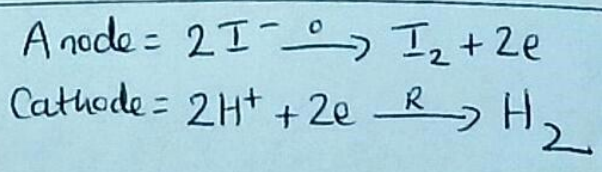 Anode = 2I⁻ —o→ I₂ + 2e
Cathode = 2H⁺ + 2e —R→ H₂